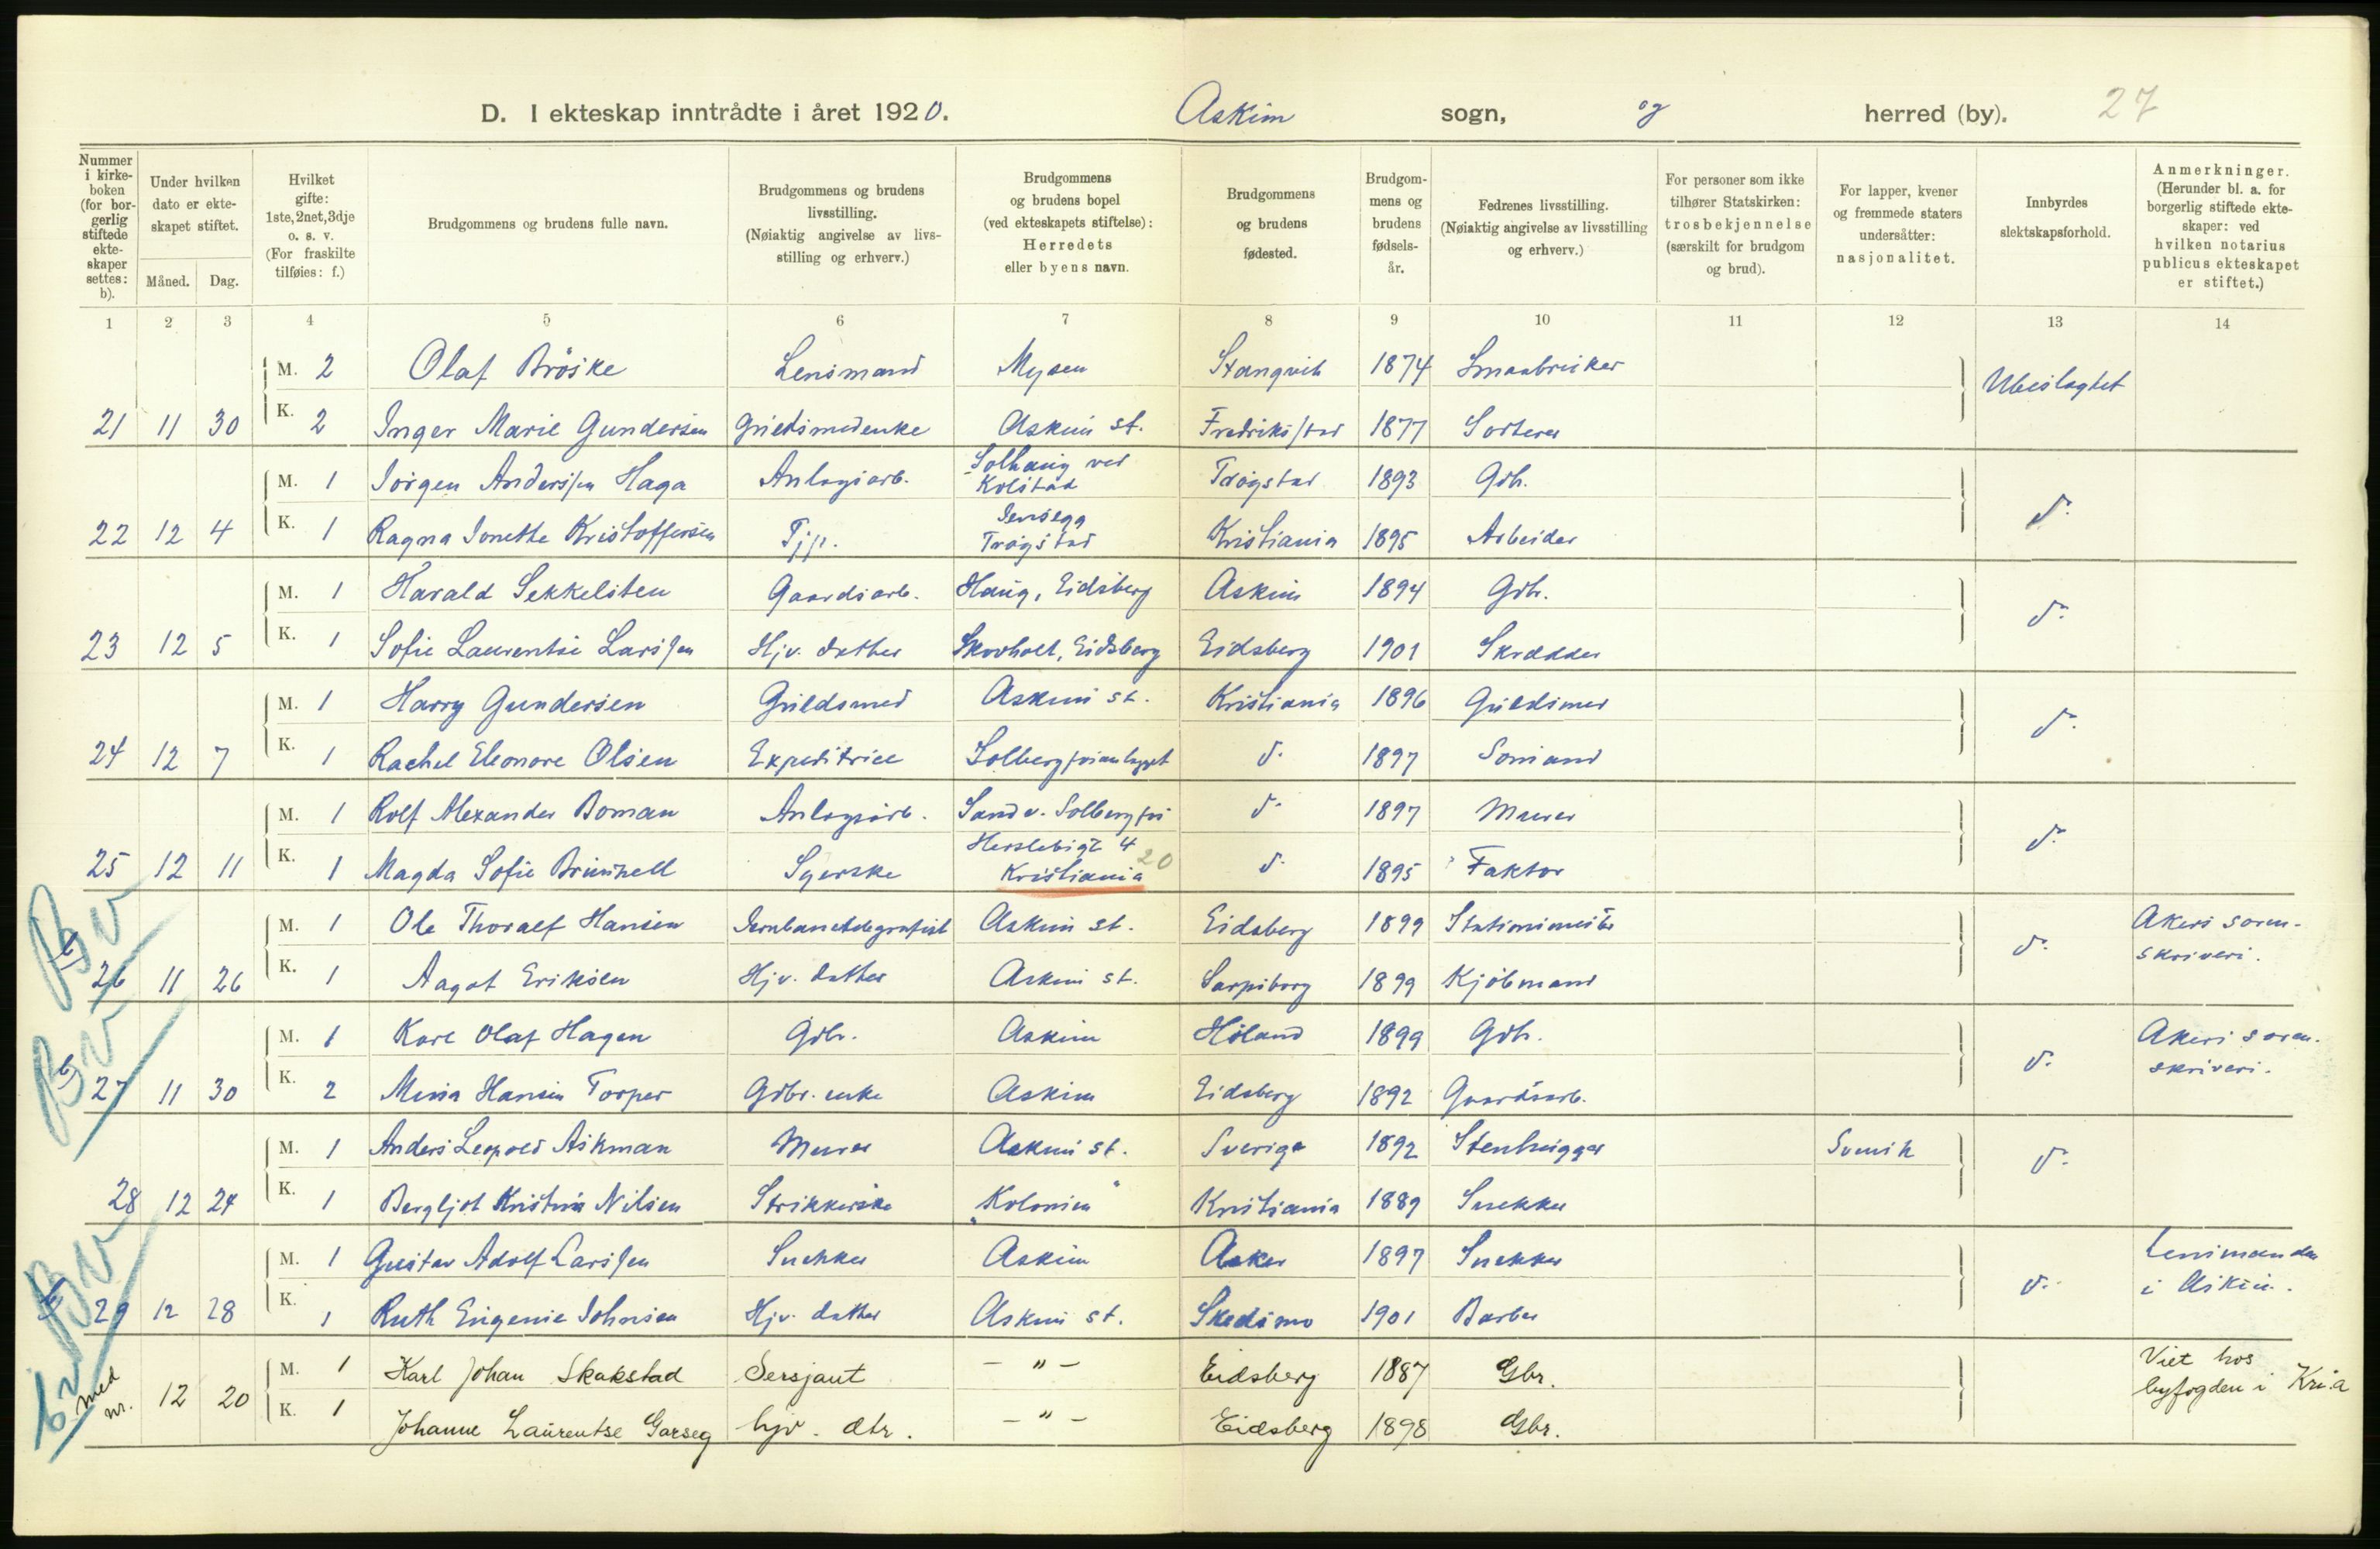 D. I ekteskap inntrådte i året 1920. Askim sogn, og herred (by). 27
Nummer i kirkeboken (for borgerlig stiftede ekteskaper settes: b).
Under hvilken dato er ekteskapet stiftet.
Måned. Dag.
Hvilket gifte: 1ste, 2net, 3dje o. s. v. (For fraskilte tilføies: f.)
Brudgommens og brudens fulle navn.
Brudgommens og brudens livsstilling. (Nøiaktig angivelse av livsstilling og erhverv.)
Brudgommens og brudens bopel (ved ekteskapets stiftelse): Herredets eller byens navn.
Brudgommens og brudens fødested.
Brudgommens og brudens fødselsår.
Fedrenes livsstilling. (Nøiaktig angivelse av livsstilling og erhverv.)
For personer som ikke tilhører Statskirken: trosbekjennelse (særskilt for brudgom og brud).
For lapper, kvener og fremmede staters undersåtter: nasjonalitet.
Innbyrdes slektskapsforhold.
Anmerkninger. (Herunder bl. a. for borgerlig stiftede ekteskaper: ved hvilken notarius publicus ekteskapet er stiftet.)
1 2 3 4 5 6 7 8 9 10 11 12 13 14
M. 2 Olaf Bröske Lensmand Mysen Stangvik 1874 Smaabruker Ubeslagtet
21 11 30 K. 2 Inger Marie Gundersen Guldsmedenke Askim st. Fredrikstad 1877 Sorterer
M. 1 Jörgen Anderssen Haga Anlagsarb. Solhaug ved Kolstad Trögstad 1893 Gdb. d.
22 12 4 K. 1 Ragna Jonette Kristoffersen Tjp. Trögstad Kristiania 1895 Arbeider
M. 1 Harald Sekkelsten Gaardsarb. Haug, Eidsberg Askim 1894 Gdb. d.
23 12 5 K. 1 Sofie Laurentse Larssen Hjv. datter Skovholt, Eidsberg Eidsberg 1901 Skrædder
M. 1 Harry Gundersen Guldsmed Askim st. Kristiania 1896 Guldsmed d.
24 12 7 K. 1 Rachel Eleonore Olsen Expeditrice Solbergfosanlegget d. 1897 Sömand
M. 1 Rolf Alexander Boman Anlagsarb. Sand v. Solbergfos d. 1897 Murer d.
25 12 11 K. 1 Magda Sofie Brünnell Syerske Herslebsgt 4 Kristiania 20 d. 1895 Faktor
M. 1 Ole Thoralf Hansen Jernbanetelegrafist Askim st. Eidsberg 1899 Stationsmester d. Akers sorenskriveri.
b 26 11 26 K. 1 Aagot Eriksen Hjv. datter Askim st. Sarpsborg 1899 Kjöbmand
M. 1 Kare Olaf Hagen Gdbr. Askim Höland 1899 Gdb. d. Akers sorenskriveri.
b 27 11 30 K. 2 Mina Hansen Torper Gdbr. enke Askim Eidsberg 1892 Gaardsarb.
M. 1 Anders Leopold Askman Murer Askim st. Sverige 1892 Stenhugger Svensk d.
28 12 24 K. 1 Bergljot Kristina Nilsen Strikkerske "Kolonien" Kristiania 1889 Snekker
M. 1 Gustav Adolf Larssen Snekker Askim Asker 1897 Snekker d. Lensmanden i Askim.
b 29 12 28 K. 1 Ruth Eugenie Johnsen Hjv. datter Askim st. Skedsmo 1901 Barber
M. 1 Karl Johan Skakstad Sersjant — " — Eidsberg 1887 Gbr. Viet hos byfogden i Kr.a
med nr. 12 20 K. 1 Johanne Laurentse Garseg hjv. dtr. — " — Eidsberg 1898 Gbr.